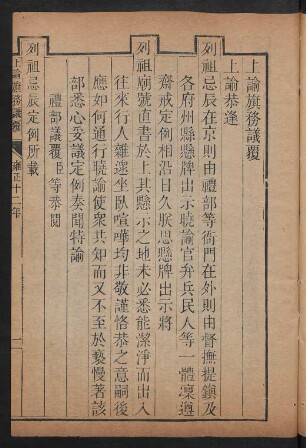 上諭旗務議覆
上諭恭逢
列祖忌辰在京則由禮部等衙門在外則由督撫提鎮及
各府州縣懸牌出示曉諭官弁兵民人等一體凜遵
齋戒定例相沿日久朕思懸牌出示將
列祖廟號直書於上其懸示之地未必悉能潔淨而出入
往來行人雜遝坐臥喧嘩均非敬謹恪恭之意嗣後
應如何通行曉諭使衆共知而又不至於褻慢著該
部悉心妥議定例奏聞特諭
禮部議覆臣等恭閱
列祖忌辰定例所載
上諭旗務議覆
雍正十二年
一